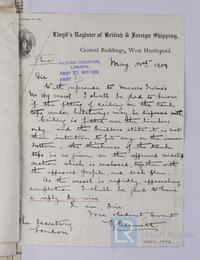 Lloyd's Register of British & Foreign Shipping,
Central Buildings, West Hartlepool.
May 21st 1909
LLOYDS REGISTER,
LONDON.
22 MAY 1909
Sir
With reference to Messrs Irvine's
No vessel I shall be glad to know
if the fitting of ceiling on the tank
tops under hatchways may be dispensed with
Ceiling is fitted over the limbers
only, and the builders state it is not
their intention to fit any on the inner
bottom, the thickness of the tank
tops is as given on the approved midship
section which is enclosed together with
the approved profile and deck plan.
As the vessel is rapidly approaching
completion I shall be glad to have
a reply by wire
I am Sir
Your obedient Servant
The Secretary
London
Lloyd's Register
Foundation